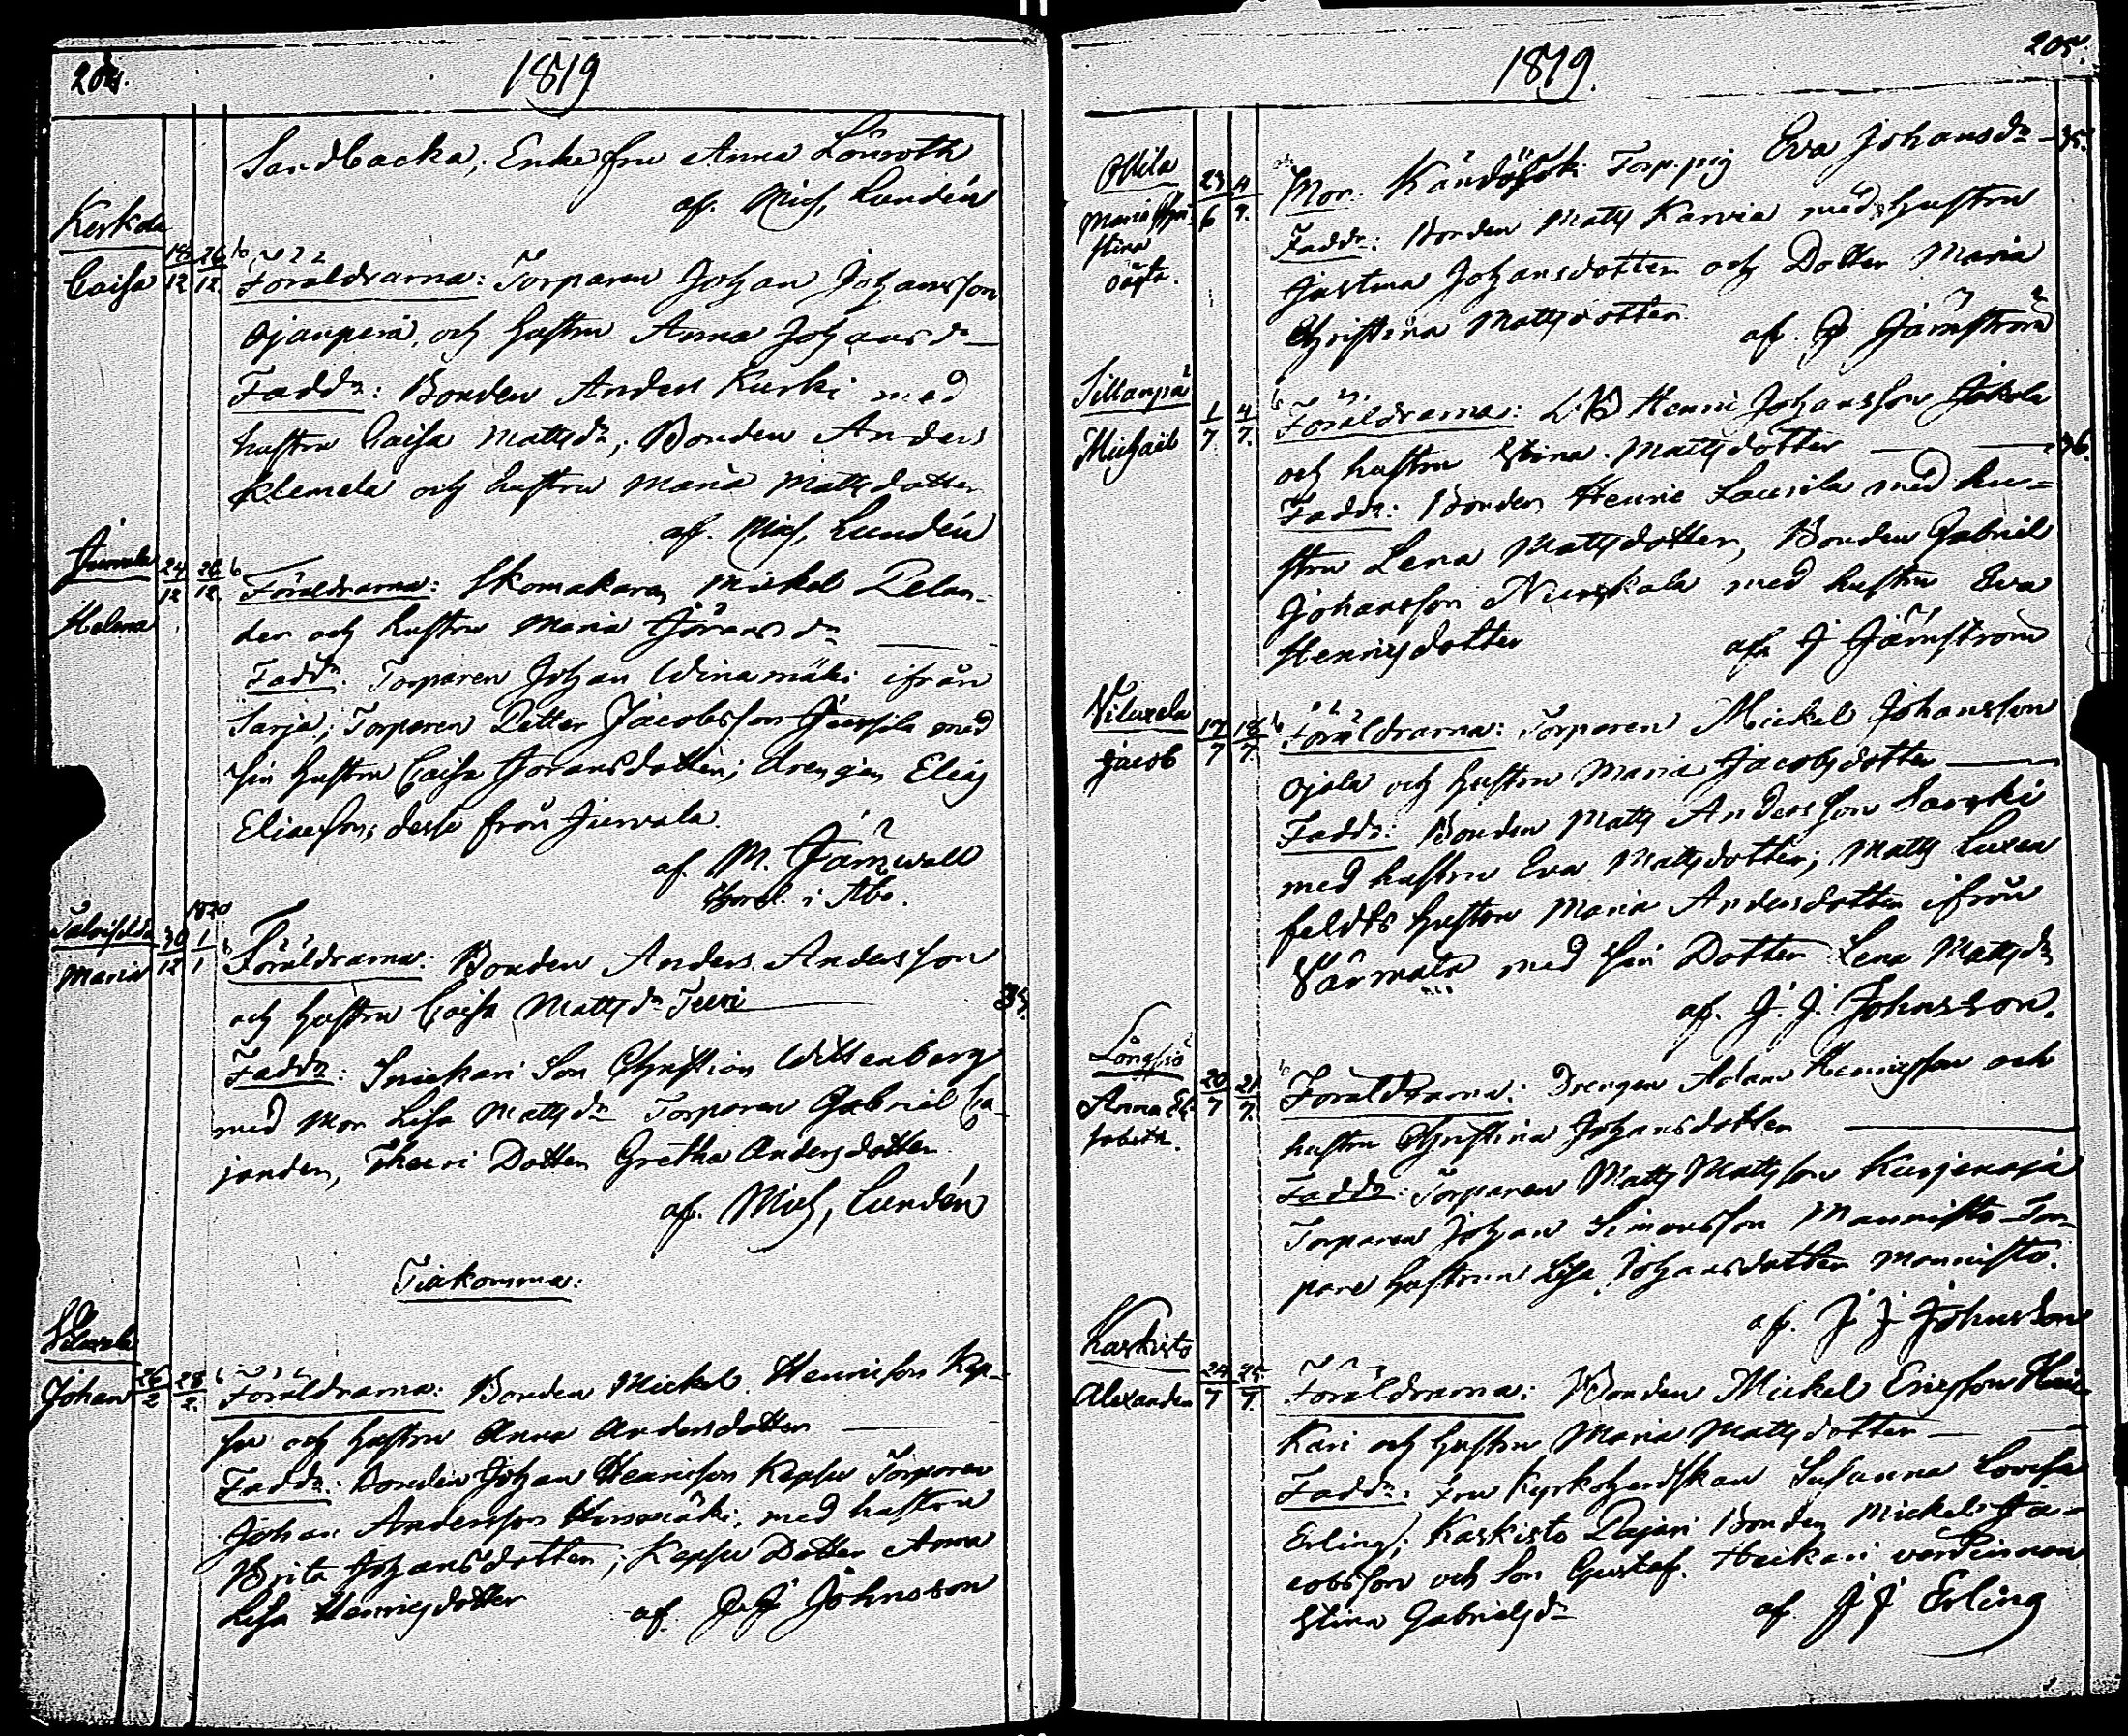 204.
1819
Sandbacka, Enke fru Anna Lönroth
af. Mich, Lundén
Caisa 12 26/12
Föräldrarna: Torparen Johan Johansson
Ojanperä, och hustru Anna Johansdr
Faddr: Bonden Anders Kurki med
hustru Caisa Mattsdr; Bonden Anders
Klemela och hustru Maria Mattsdotter
af. Mich, Lundén
Helena 24/12 26/12
Föräldrarna: Skomakaren Mickel Pelan-
der och hustru Maria Göransdr
Faddr. Torparen Johan Winamäki ifrån
Sarja; Torparen Petter Jacobsson med
sin hustru Caisa Göransdotter; drengen Elias
Eliaesson; desse från Juvvala.
af. M. Järnwall
i Åbo.
1820
Maria 30/12 1/1
Föräldrarna: Bonden Anders Andersson
och hustru Caisa Mattsdr Teeri
Faddr: Snickari Son Christian Wittenberg
med Mor Lisa Mattsdr Torparen Gabriel Ca-
jander, Theeri Dotter Gretha Andersdotter.
af. Mich, Lundén
Tilkomma:
Viluxela
Johan 26/2 28/2
Föräldrarna: Bonden Mickel Henricsson Kep-
su och hustru Anna Andersdotter
Faddr: Bonden Johan Henricsson Kepsu Torparen
Johan Andersson med hustru
Brita Johansdotter; Kepsu Dotter Anna
Lisa Henricsdotter af. J. J Johnsson
205.
1819.
Ollila
Maria Chri-
stina
oägta.
23/6 4/7.
Mor. Torp. pig Eva Johansdr 35.
Faddr: Bonden Matts Karvia med hustru
Justina Johansdotter och Dotter Maria
Christina Mattsdotter. af. J. Järnström
Sillanpä
Michael 1/7 4/7.
Föräldrarna: Henric Johansson Jokela
och hustru Stina Mattsdotter 36.
Faddr: Bonden Henric Laurila med hu-
stru Lena Mattsdotter, Bonden Gabriel
Johansson med hustru Eva
Henricsdotter af J Järnström
Viluxela
Jacob 17/7 18/7.
Föräldrarna: Torparen Mickel Johansson
Ojala och hustru Maria Jacobsdotter
Faddr: Bonden Matts Andersson
med hustru Eva Mattsdotter; Matts Luxen
feldts hustru Maria Andersdotter ifrån
med sin Dotter Lena Mattsdr
af. J. J. Johnsson.
Långsjö
Anna Eli-
sabeth. 20/7 21/7.
Föräldrarna: Drengen Adam Henricsson och
hustru Christina Johansdotter
Faddr: Torparen Matts Mattsson Kurjenoja
Torparen Johan Simonsson Mannisto Tor-
pare hustrun Lisa Johansdotter Mannisto.
af. J J Johnsson
Karkisto
Alexander 24/7 25/7.
Föräldrarna: Bonden Mickel Ericsson Hei-
kari och hustru Maria Mattsdotter
Faddr: Fru Kyrkoherdskan Susanna Lovisa
Erling; Karkisto Pajari Bonden Mickel Ja-
cobsson och Son Gustaf. Heikari
Stina Gabrielsdr af J J Erling